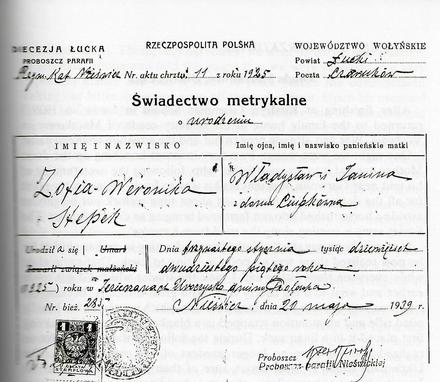 DIECEZJA ŁUCKA
RZECZPOSPOLITA POLSKA
WOJEWÓDZTWO WOŁYŃSKIE
PROBOSZCZ PARAFII
Powiat Łucki
Rzym. Kat. Nieświcz Nr. aktu chrztu 11 z roku 1925
Poczta
Świadectwo metrykalne
o urodzeniu
IMIĘ I NAZWISKO
Imię ojca, imię i nazwisko panieńskie matki
Zofia-Weronika
Stepek
Władysław i Janina
z domu Ciupkówna
Urodziła się Umarł
Dnia czwartego stycznia tysiąc dziewięćset
Zawarli związek małżeński
dwudziestego piątego roku
(1925) roku w
Nr bież. 283
Nieświcz, dnia 20 maja 1939
1
Proboszcz
Proboszcz parafii Nieświckiej